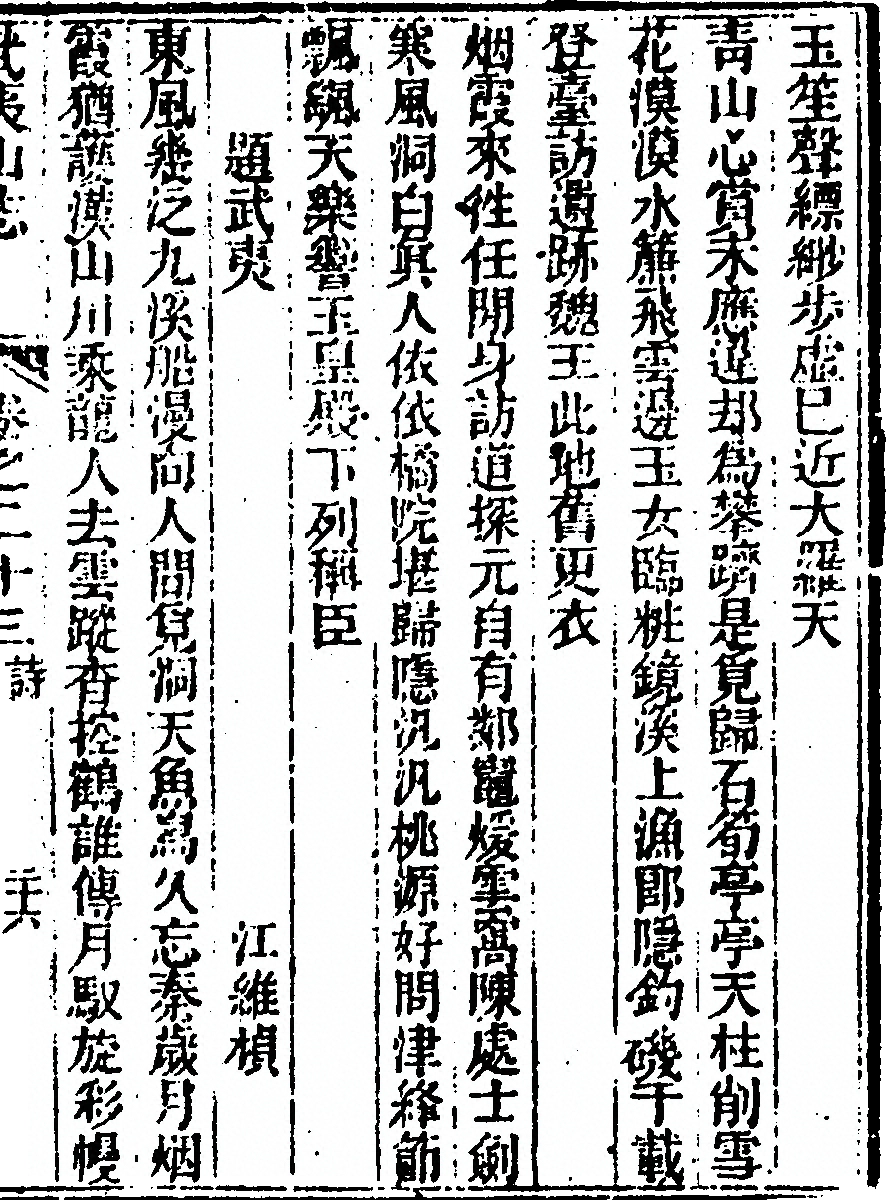 玉笙聲縹緲步虛已近大羅天
靑山心賞未應違却爲攀躋是覓歸石筍亭亭天柱削雪
花漠漠水簾飛雲邊玉女臨粧鏡溪上漁郎隱釣磯千載
登臺訪遺跡魏王此地舊更衣
烟霞來徃任閒身訪道探元自有鄰竈煖雲窩陳處士劍
寒風洞白眞人依依橘院堪歸隱汎汎桃源好問津絳節
飄颻天樂響玉皇殿下列稱臣
題武夷
江維楨
東風幾泛九溪船漫向人間覓洞天魚鳥久忘秦歲月烟
霞猶護漢山川乘龍人去雲蹤杳控鶴誰傳月馭旋彩幔
武夷山志
卷之二十三
詩
二十六